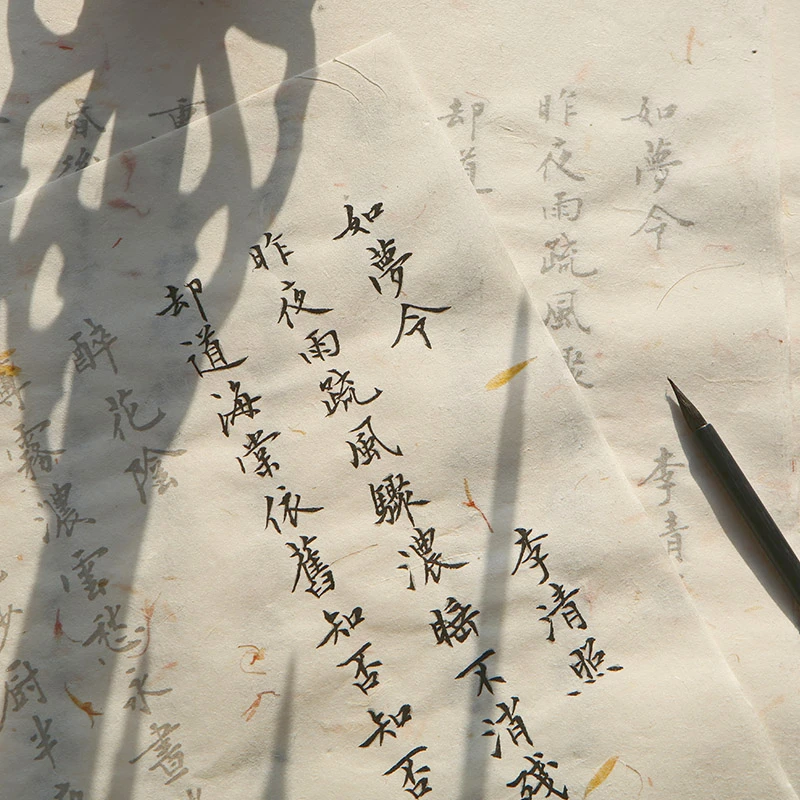 如夢令
李清照
昨夜雨疏風驟濃睡不消殘
却道海棠依舊知否知否
如夢令
李
昨夜雨疏風
却道
醉花陰
霧濃雲愁永晝
厨半
重
昏後